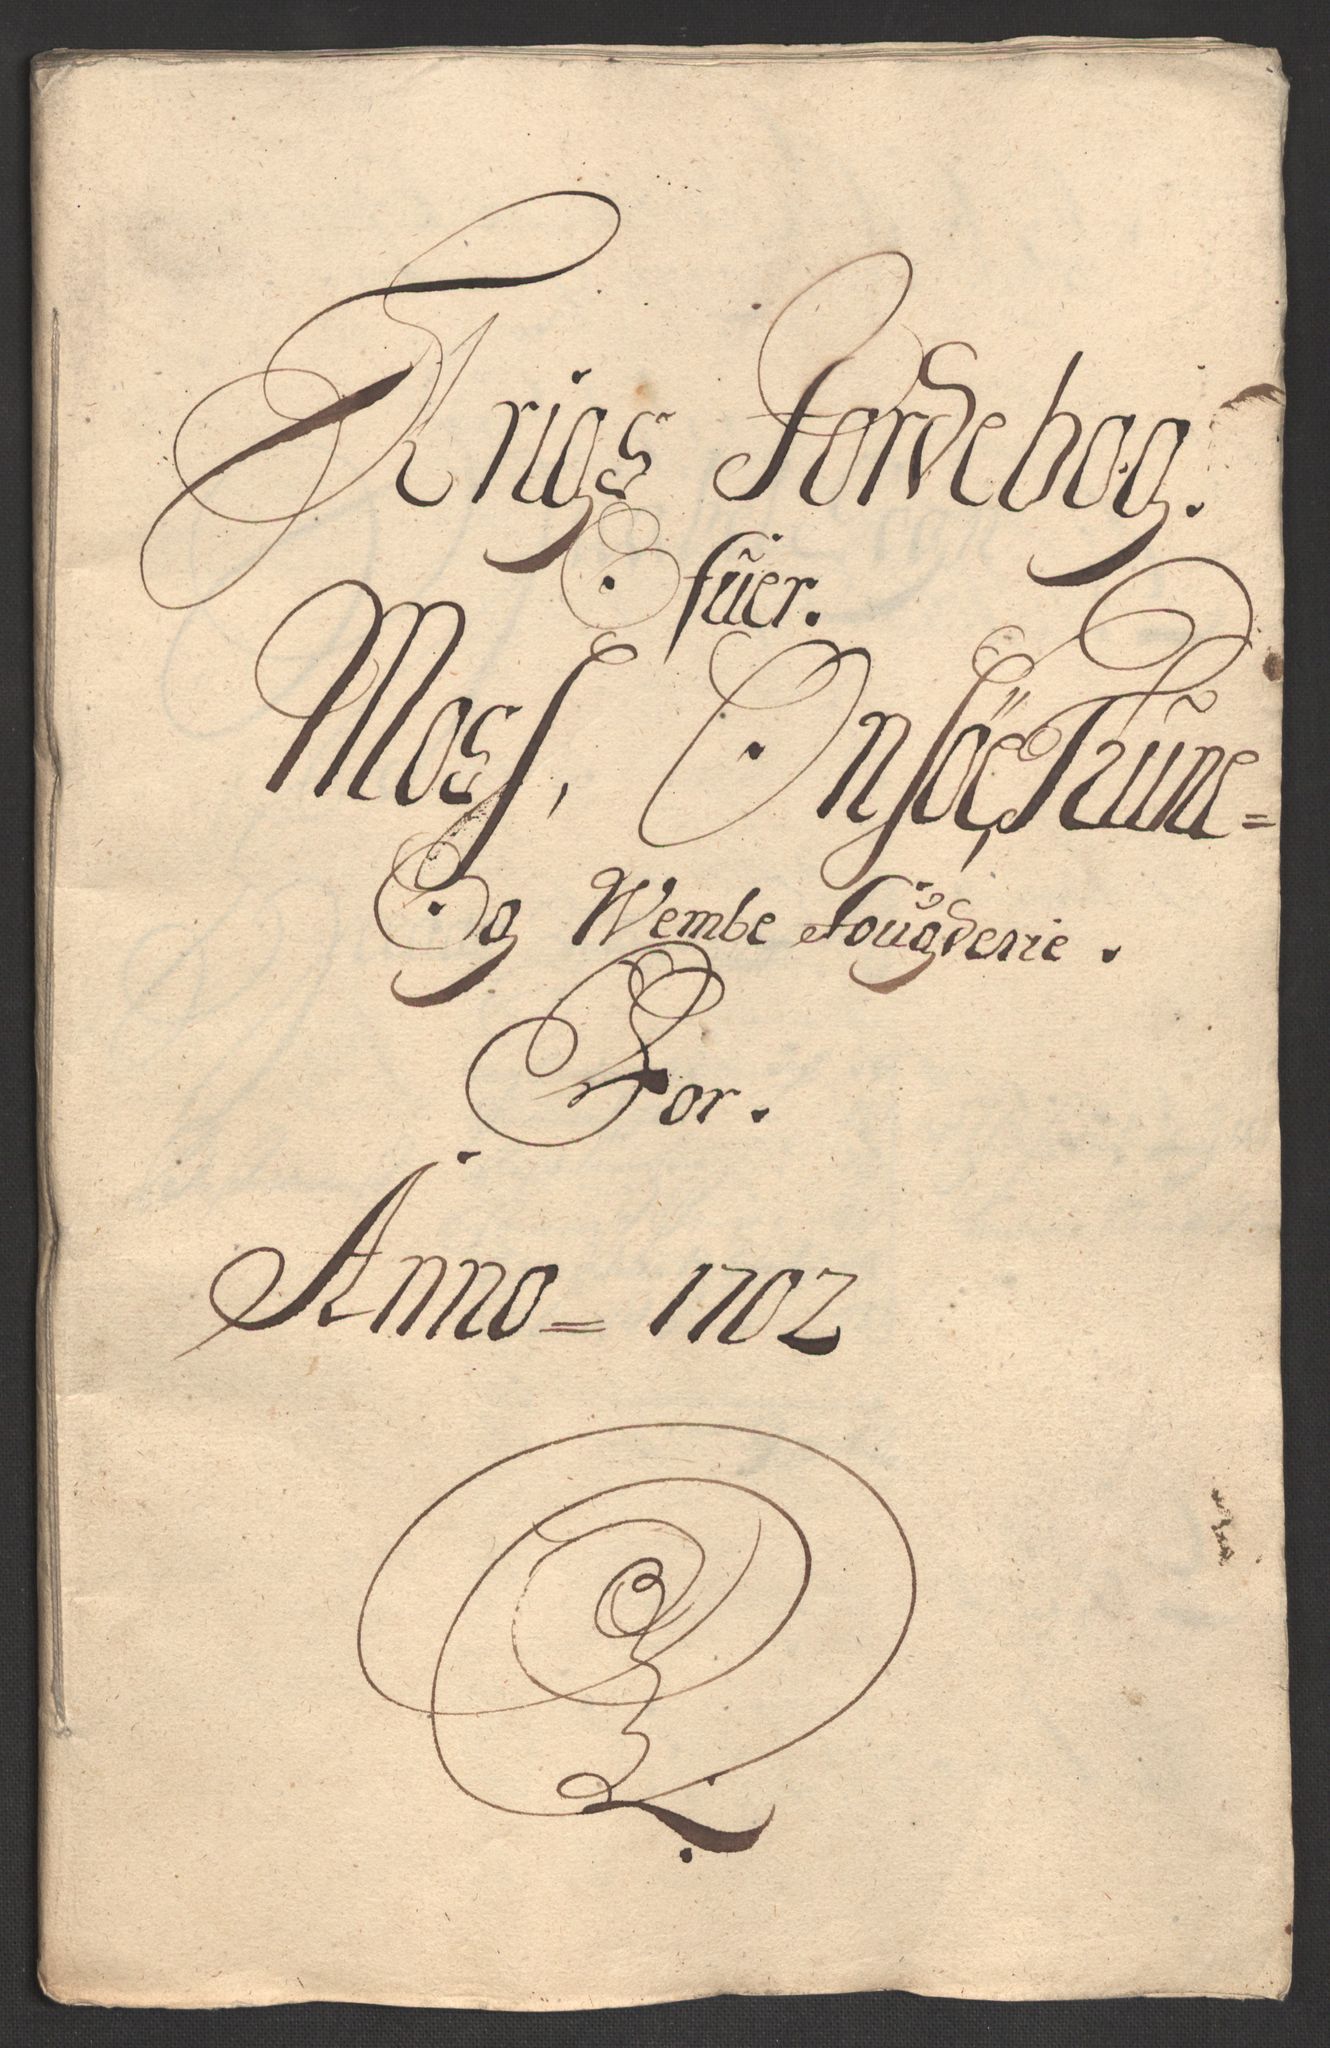 Krigs Jordebog.
Ofűer.
Moss, Onsöe, Tűne=
Og Wembe Fougderie.
For.
Anno = 1702